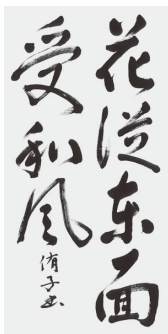 花從东面
受和风
侑子书